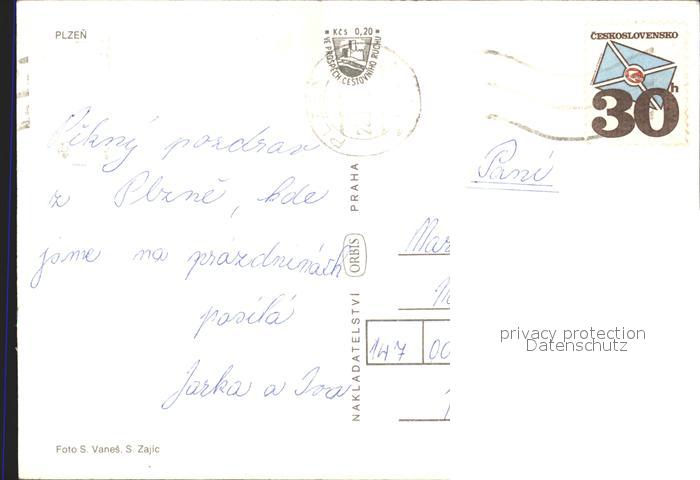 PLZEŇ
Kčs 0,20
VE PROSPĚCH CESTOVNÍHO RUCHU
ČESKOSLOVENSKO
30h
Pěkný pozdrav
z Plzně, kde
jsme na prázdninách
posílá
Jarka a Iva
Foto S. Vaneš, S. Zajíc
NAKLADATELSTVÍ ORBIS PRAHA
Paní
Mar
147 00
privacy protection
Datenschutz